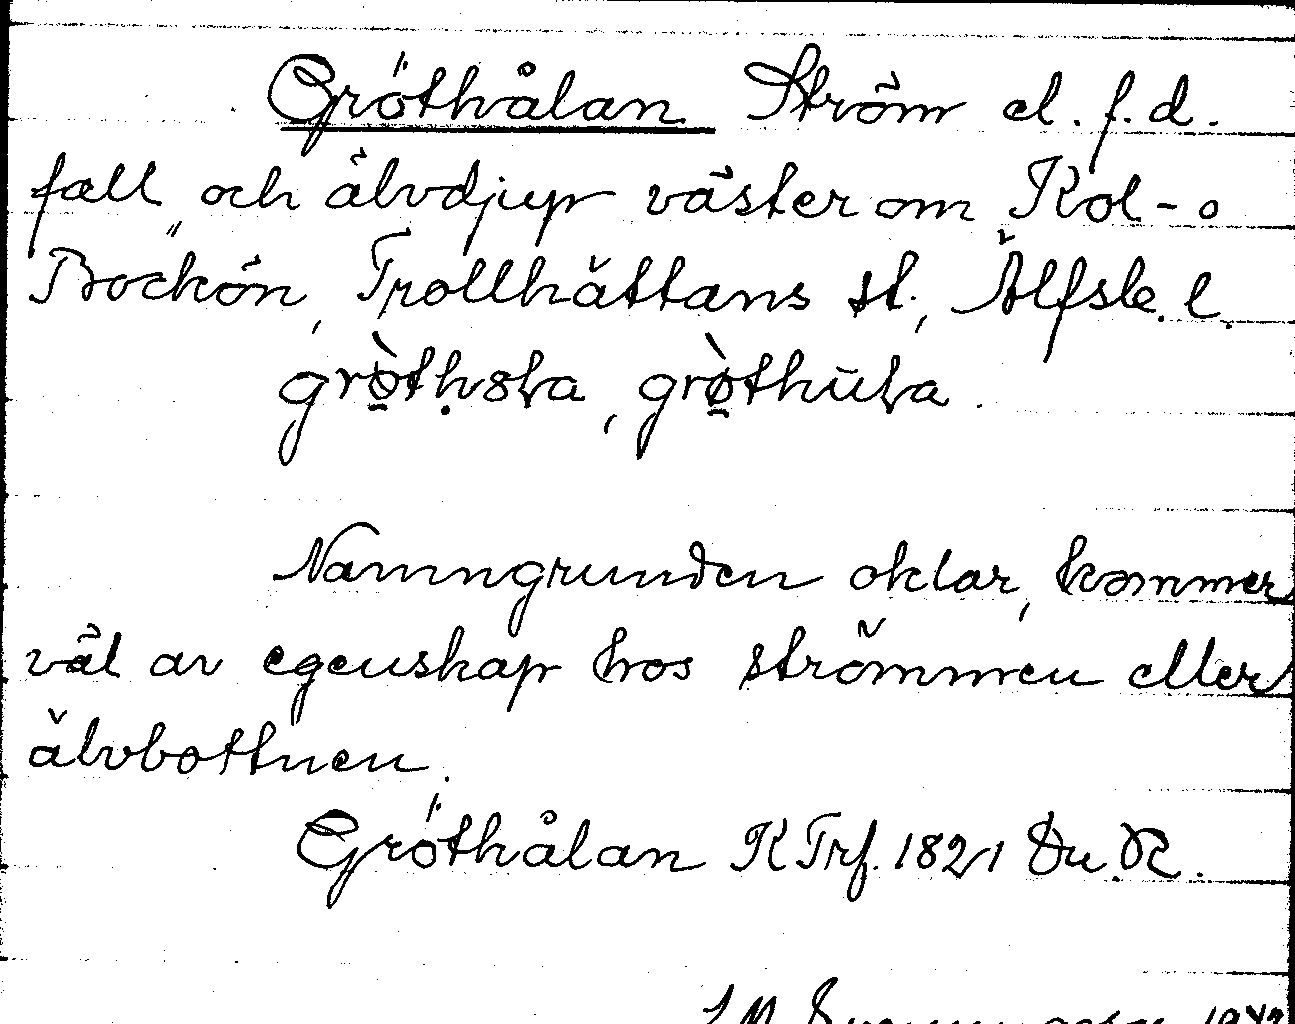 Gröthålan Ström el. f.d.
fall och älvdjup väster om Kol- o
Bockön, Trollhättans st., Älfsb. l.
grø̀thɷła, grø̀thūła.
Namngrunden oklar, kommer
väl av egenskap hos strömmen eller
älvbottnen.
Gröthålan K Trf. 1821 Du. R.